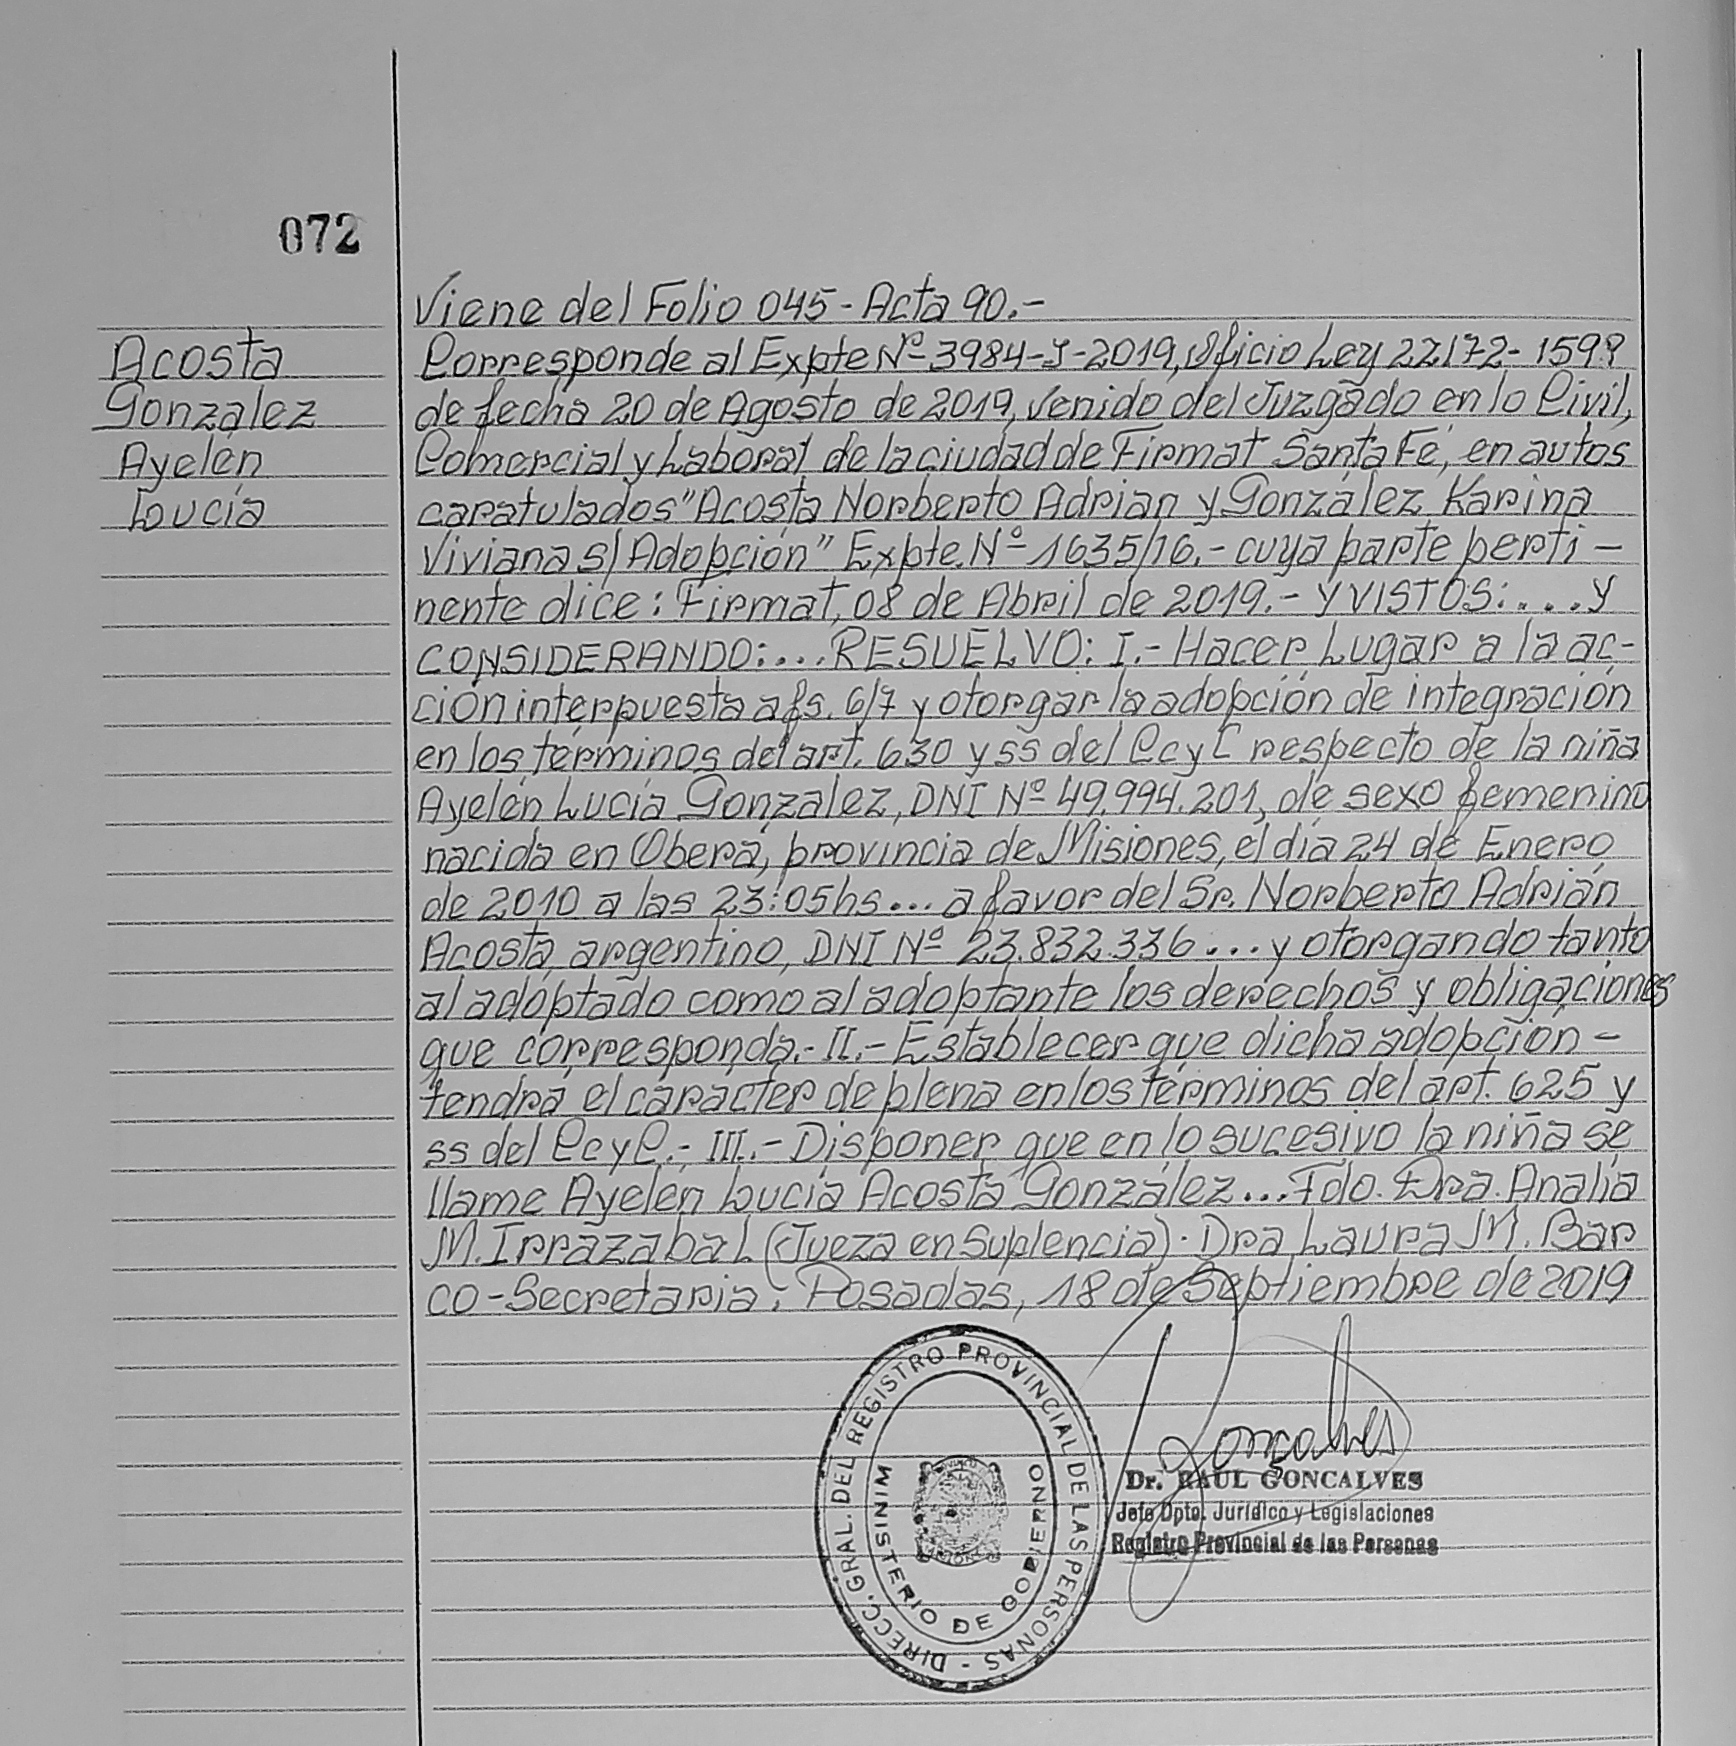 072
Viene del Folio 045 - Acta 90.-
Acosta
González
Ayelén
Lucía
Corresponde al Expte Nº 3984-J-2019, Oficio Ley 22172-1599
de fecha 20 de Agosto de 2019, venido del Juzgado en lo Civil,
Comercial y Laboral de la ciudad de Firmat Santa Fé, en autos
caratulados "Acosta Norberto Adrian y González Karina
Viviana s/ Adopción" Expte. Nº 1635/16.- cuya parte perti-
nente dice: Firmat, 08 de Abril de 2019.- Y VISTOS:.... y
CONSIDERANDO:... RESUELVO: I.- Hacer Lugar a la ac-
ción interpuesta a fs. 6/7 y otorgar la adopción de integración
en los términos del art. 630 y ss del CcyC respecto de la niña
Ayelén Lucía Gonzalez, DNI Nº 49.994.201, de sexo femenino
nacida en Oberá, provincia de Misiones, el día 24 de Enero
de 2010 a las 23:05hs... a favor del Sr. Norberto Adrián
Acosta, argentino, DNI Nº 23.832.336... y otorgando tanto
al adoptado como al adoptante los derechos y obligaciones
que corresponda.- II.- Establecer que dicha adopción -
tendrá el carácter de plena en los términos del art. 625 y
ss del CcyC.- III.- Disponer que en lo sucesivo la niña se
llame Ayelén Lucía Acosta González... Fdo. Dra. Analía
M. Irrazabal (Jueza en Suplencia). Dra Laura M. Bar
co - Secretaria. Posadas, 18 de Septiembre de 2019
DIRECC. GRAL. DEL REGISTRO PROVINCIAL DE LAS PERSONAS -
MINISTERIO DE GOBIERNO
Goncalves
Dr. RAUL GONCALVES
Jefe Dpto. Jurídico y Legislaciones
Registro Provincial de las Personas